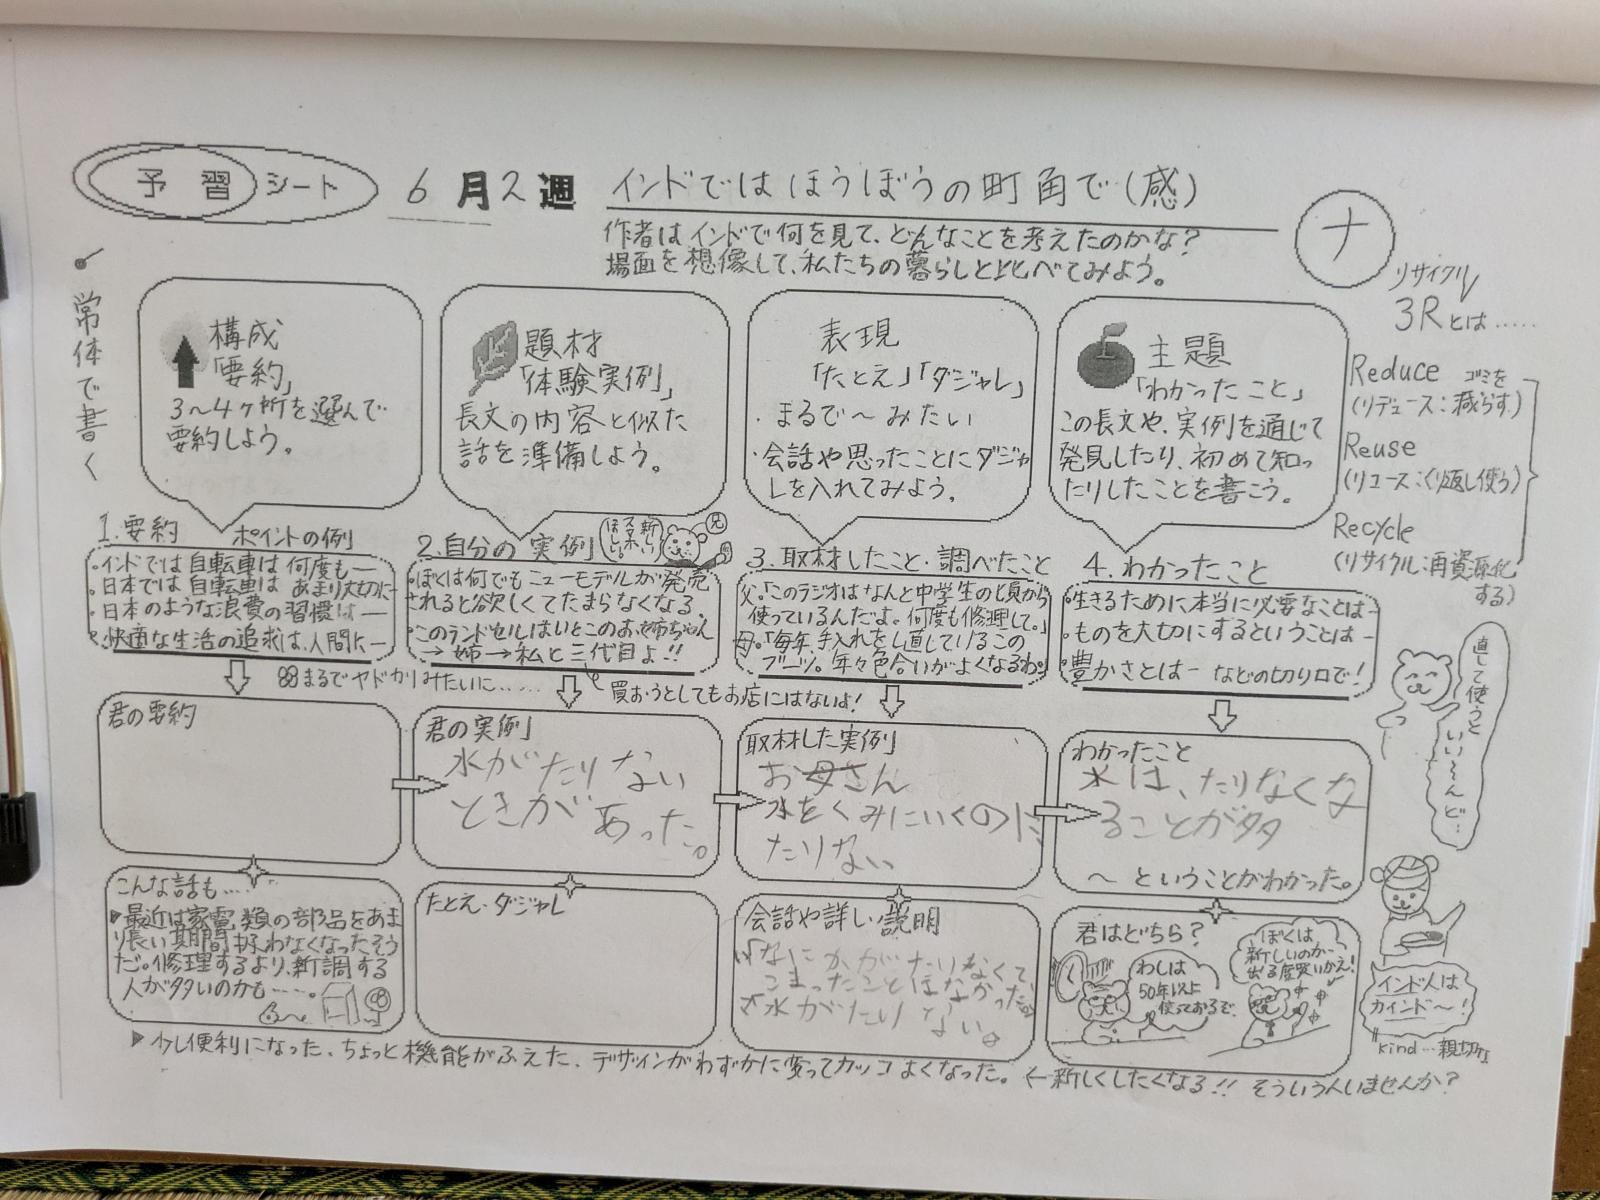 予習シート 6月2週 インドではほうぼうの町角で(感)
ナ
作者はインドで何を見て、どんなことを考えたのかな?
場面を想像して、私たちの暮らしと比べてみよう。
常体で書く
構成
「要約」
3〜4ヶ所を選んで
要約しよう。
題材
「体験実例」
長文の内容と似た
話を準備しよう。
表現
「たとえ」「ダジャレ」
・まるで〜みたい
・会話や思ったことにダジャ
レを入れてみよう。
主題
「わかったこと」
この長文や、実例を通じて
発見したり、初めて知っ
たりしたことを書こう。
リサイクル
3Rとは……
Reduce ゴミを
(リデュース:減らす)
Reuse
(リユース:くり返し使う)
Recycle
(リサイクル:再資源化
する)
1.要約 ポイントの例
・インドでは自転車は何度も―
・日本では自転車はあまり大切に―
・日本のような浪費の習慣は―
・快適な生活の追求は、人間に―
2.自分の実例
新しい
スマホ
ほしい
兄
・ぼくは何でもニューモデルが発売
されると欲しくてたまらなくなる。
・このランドセルはいとこのお姉ちゃん
→姉→私と三代目よ!!
3.取材したこと・調べたこと
父「このラジオはなんと中学生の頃から
使っているんだよ。何度も修理して。」
母「毎年、手入れをし直しているこの
ブーツ。年々色合いがよくなるわ。
4.わかったこと
・生きるために本当に必要なことは―
・ものを大切にするということは―
・豊かさとは― などの切り口で!
まるでヤドカリみたいに……
買おうとしてもお店にはないよ!
直して使うと
いい〜んど…
君の要約
君の実例
水がたりない
ときがあった。
取材した実例
お母さん
水をくみにいくのに
たりない
わかったこと
水は、たりなくな
ることが多
〜ということがわかった。
こんな話も……
▶最近は家電類の部品をあま
り長い期間扱わなくなったそう
だ。修理するより、新調する
人が多いのかも……。
たとえ・ダジャレ
会話や詳しい説明
「なにかがたりなくて、
こまったことはなかった
水がたりない。
君はどちら?
わしは
50年以上
使っておるで。
ぼくは
新しいのが
出る度買いかえ!
インド人は
カインド〜!
kind…親切
▶少し便利になった、ちょっと機能がふえた、デザインがわずかに変ってカッコよくなった。←新しくしたくなる!! そういう人いませんか?